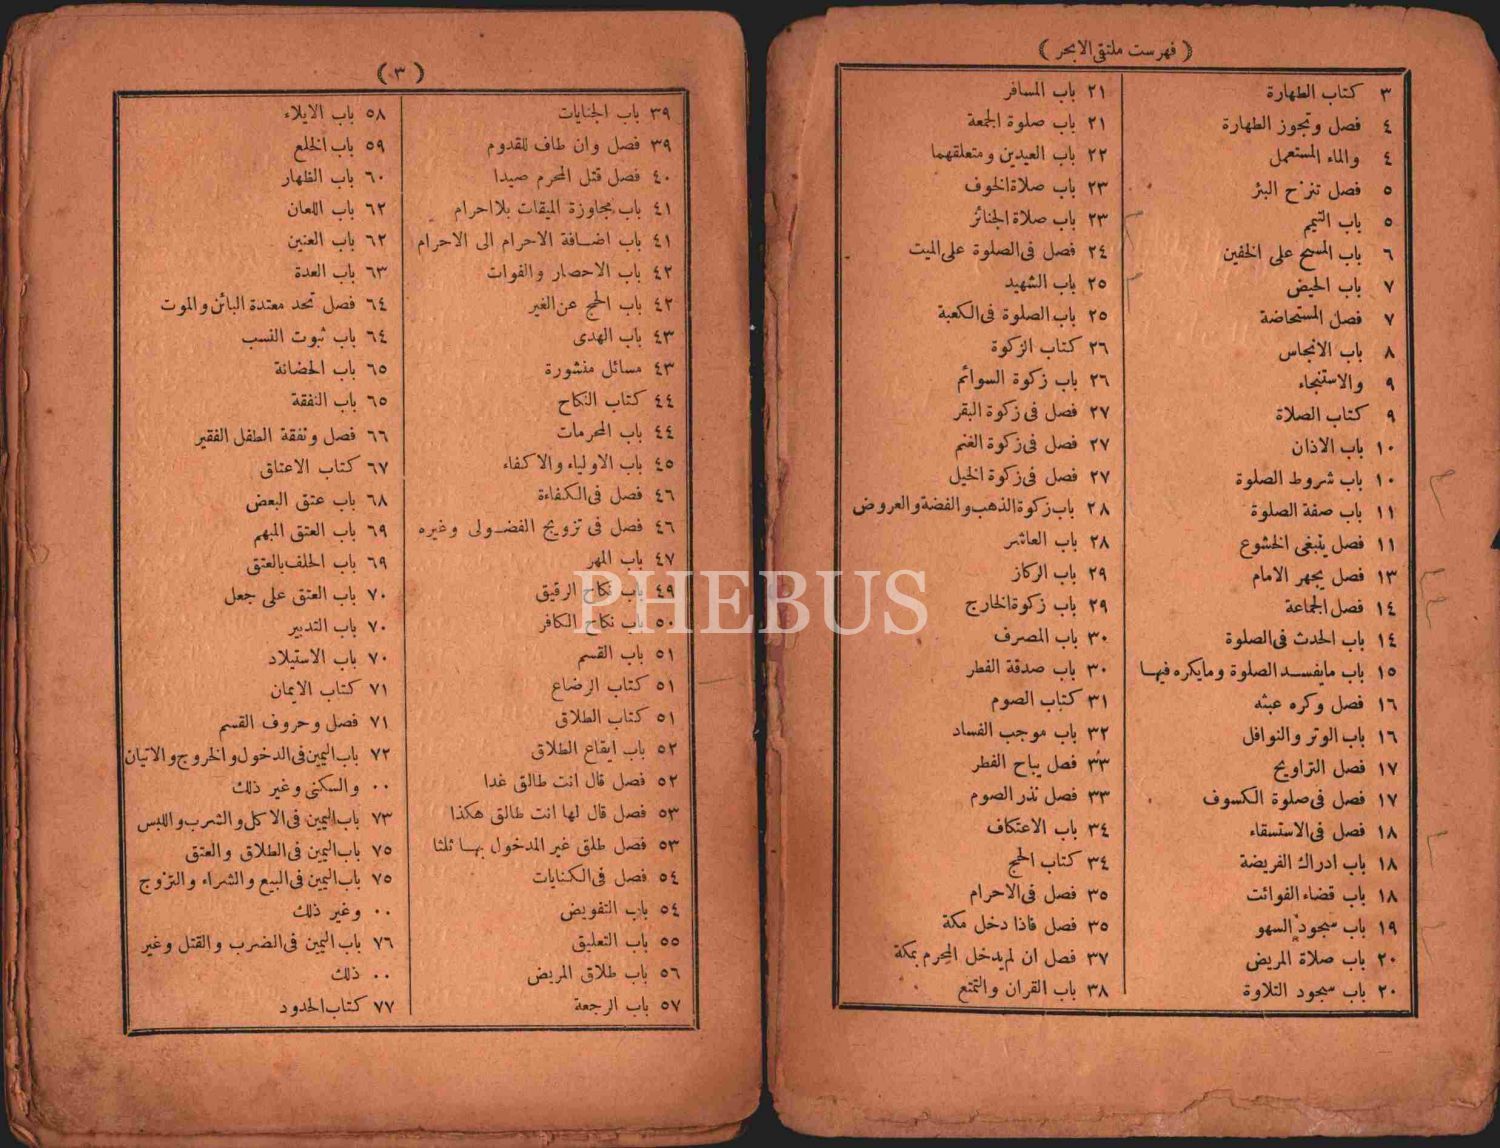 ﴿ فهرست ملتقى الابحر ﴾
٣ كتاب الطهارة
٤ فصل وتجوز الطهارة
٤ والماء المستعمل
٥ فصل تنزح البئر
٥ باب التيمم
٦ باب المسح على الخفين
٧ باب الحيض
٧ فصل المستحاضة
٨ باب الانجاس
٩ والاستنجاء
٩ كتاب الصلاة
١٠ باب الاذان
١٠ باب شروط الصلوة
١١ باب صفة الصلوة
١١ فصل ينبغى الخشوع
١٣ فصل يجهر الامام
١٤ فصل الجماعة
١٤ باب الحدث فى الصلوة
١٥ باب مايفسد الصلوة ومايكره فيها
١٦ فصل وكره عبثه
١٦ باب الوتر والنوافل
١٧ فصل التراويح
١٧ فصل فى صلوة الكسوف
١٨ فصل فى الاستسقاء
١٨ باب ادراك الفريضة
١٨ باب قضاء الفوائت
١٩ باب سجود السهو
٢٠ باب صلاة المريض
٢٠ باب سجود التلاوة
٢١ باب المسافر
٢١ باب صلوة الجمعة
٢٢ باب العيدين ومتعلقهما
٢٣ باب صلاة الخوف
٢٣ باب صلاة الجنائز
٢٤ فصل فى الصلوة على الميت
٢٥ باب الشهيد
٢٥ باب الصلوة فى الكعبة
٢٦ كتاب الزكوة
٢٦ باب زكوة السوائم
٢٧ فصل فى زكوة البقر
٢٧ فصل فى زكوة الغنم
٢٧ فصل فى زكوة الخيل
٢٨ باب زكوة الذهب والفضة والعروض
٢٨ باب العاشر
٢٩ باب الركاز
٢٩ باب زكوة الخارج
٣٠ باب المصرف
٣٠ باب صدقة الفطر
٣١ كتاب الصوم
٣٢ باب موجب الفساد
٣٣ فصل يباح الفطر
٣٣ فصل نذر الصوم
٣٤ باب الاعتكاف
٣٤ كتاب الحج
٣٥ فصل فى الاحرام
٣٥ فصل فاذا دخل مكة
٣٧ فصل ان لم يدخل المحرم بمكة
٣٨ باب القران والتمتع
﴿ ٣ ﴾
٣٩ باب الجنايات
٣٩ فصل وان طاف للقدوم
٤٠ فصل قتل المحرم صيدا
٤١ باب مجاوزة الميقات بلا احرام
٤١ باب اضافة الاحرام الى الاحرام
٤٢ باب الاحصار والفوات
٤٢ باب الحج عن الغير
٤٣ باب الهدى
٤٣ مسائل منثورة
٤٤ كتاب النكاح
٤٤ باب المحرمات
٤٥ باب الاولياء والاكفاء
٤٦ فصل فى الكفاءة
٤٦ فصل فى تزويج الفضولى وغيره
٤٧ باب المهر
٤٩ باب نكاح الرقيق
٥٠ باب نكاح الكافر
٥١ باب القسم
٥١ كتاب الرضاع
٥١ كتاب الطلاق
٥٢ باب ايقاع الطلاق
٥٢ فصل قال انت طالق غدا
٥٣ فصل قال لها انت طالق هكذا
٥٣ فصل طلق غير المدخول بها ثلثا
٥٤ فصل فى الكنايات
٥٤ باب التفويض
٥٥ باب التعليق
٥٦ باب طلاق المريض
٥٧ باب الرجعة
٥٨ باب الايلاء
٥٩ باب الخلع
٦٠ باب الظهار
٦٢ باب اللعان
٦٢ باب العنين
٦٣ باب العدة
٦٤ فصل تحد معتدة البائن والموت
٦٤ باب ثبوت النسب
٦٥ باب الحضانة
٦٥ باب النفقة
٦٦ فصل ونفقة الطفل الفقير
٦٧ كتاب الاعتاق
٦٨ باب عتق البعض
٦٩ باب العتق المبهم
٦٩ باب الحلف بالعتق
٧٠ باب العتق على جعل
٧٠ باب التدبير
٧٠ باب الاستيلاد
٧١ كتاب الايمان
٧١ فصل وحروف القسم
٧٢ باب اليمين فى الدخول والخروج والاتيان
٠٠ والسكنى وغير ذلك
٧٣ باب اليمين فى الاكل والشرب واللبس
٧٥ باب اليمين فى الطلاق والعتق
٧٥ باب اليمين فى البيع والشراء والتزوج
٠٠ وغير ذلك
٧٦ باب اليمين فى الضرب والقتل وغير
٠٠ ذلك
٧٧ كتاب الحدود
PHEBUS